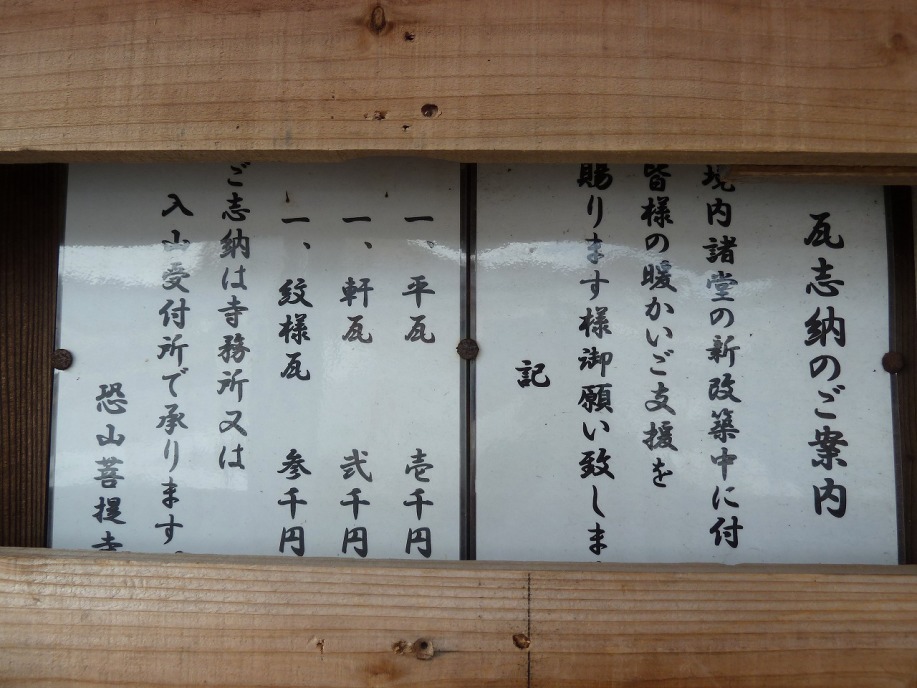 瓦志納のご案内
境内諸堂の新改築中に付
皆様の暖かいご支援を
賜ります様御願い致しま
記
一、平瓦 壱千円
一、軒瓦 弐千円
一、紋様瓦 参千円
ご志納は寺務所又は
入山受付所で承ります。
恐山菩提寺